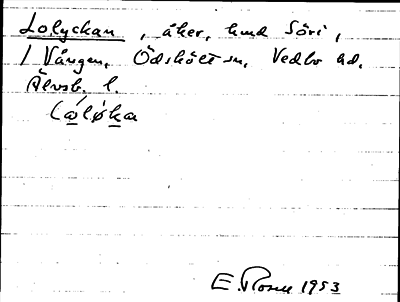 Lolyckan, åker, hmd Söri,
1 Vången, Ödskölt sn, Vedbo hd.
Älvsb. l.
Lǻlø̀ka
E. Rosell 1953